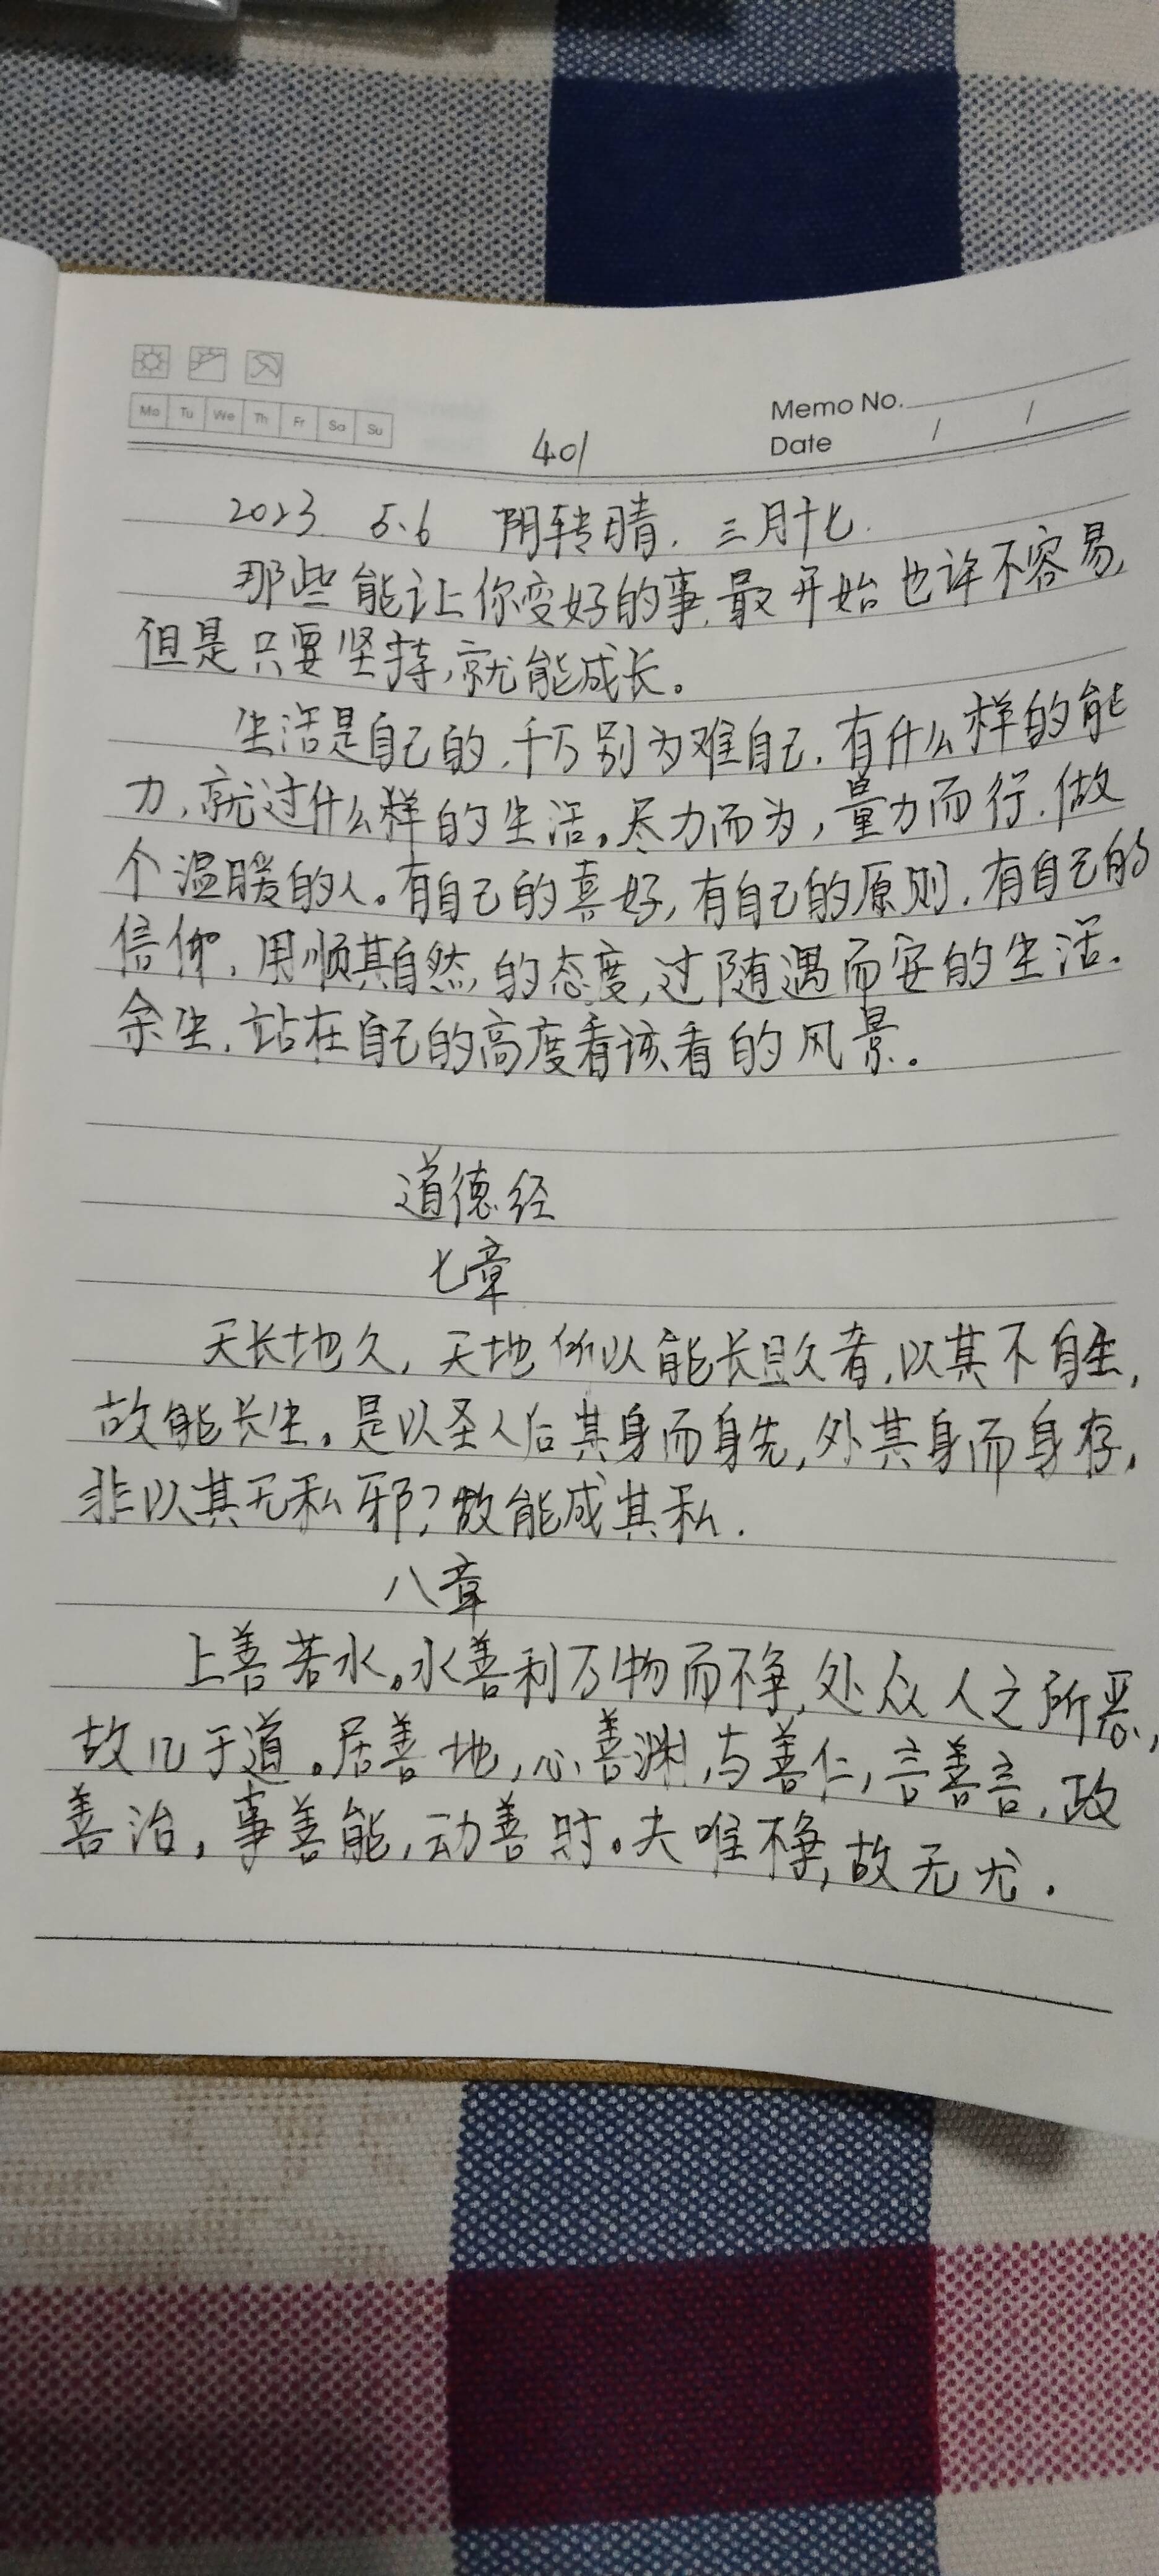 Mo Tu We Th Fr Sa Su
Memo No.
Date / /
401
2023 5.6 阴转晴. 三月十七.
那些能让你变好的事,最开始也许不容易,
但是只要坚持,就能成长。
生活是自己的,千万别为难自己.有什么样的能
力,就过什么样的生活。尽力而为,量力而行.做
个温暖的人。有自己的喜好,有自己的原则,有自己的
信仰,用顺其自然,的态度,过随遇而安的生活.
余生,站在自己的高度看该看的风景。
道德经
七章
天长地久,天地所以能长且久者,以其不自生,
故能长生。是以圣人后其身而身先,外其身而身存,
非以其无私邪?故能成其私.
八章
上善若水。水善利万物而不争,处众人之所恶,
故几于道。居善地,心善渊,与善仁,言善言,政
善治,事善能,动善时。夫唯不争,故无尤.